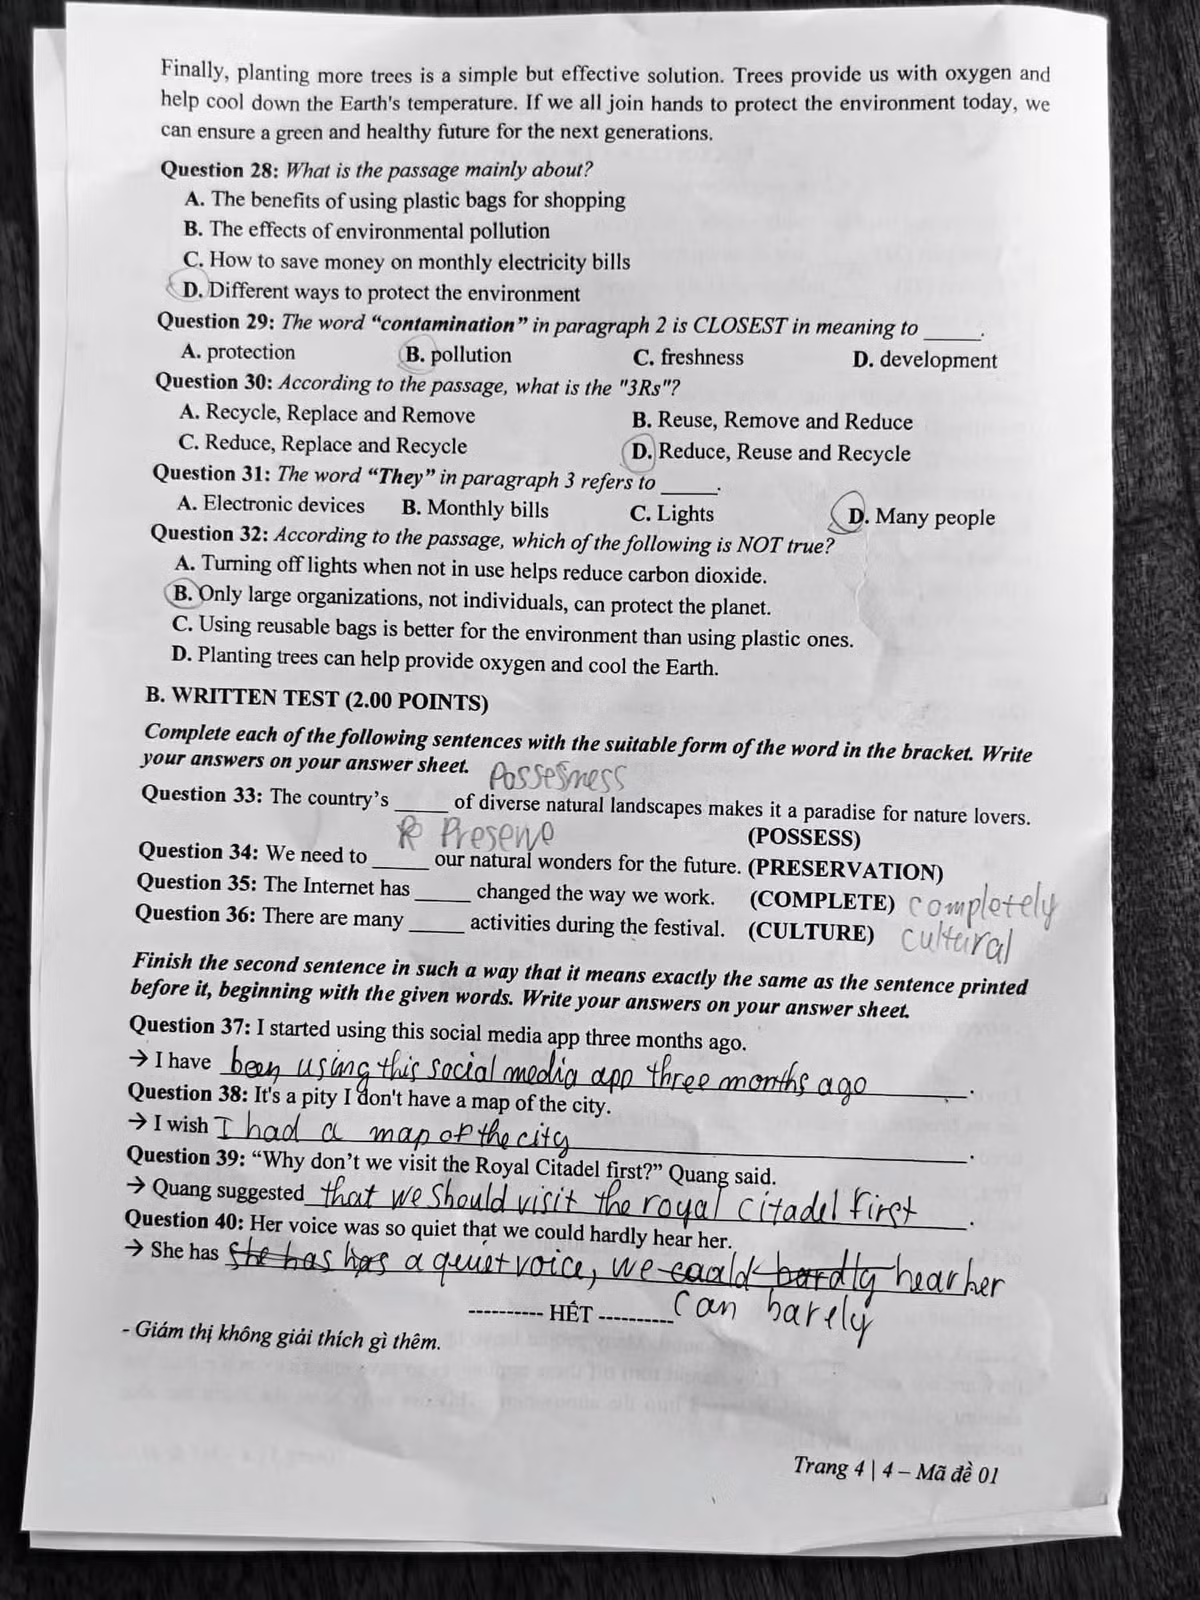 Finally, planting more trees is a simple but effective solution. Trees provide us with oxygen and
help cool down the Earth's temperature. If we all join hands to protect the environment today, we
can ensure a green and healthy future for the next generations.
Question 28: What is the passage mainly about?
A. The benefits of using plastic bags for shopping
B. The effects of environmental pollution
C. How to save money on monthly electricity bills
D. Different ways to protect the environment
Question 29: The word “contamination” in paragraph 2 is CLOSEST in meaning to _____.
A. protection B. pollution C. freshness D. development
Question 30: According to the passage, what is the "3Rs"?
A. Recycle, Replace and Remove B. Reuse, Remove and Reduce
C. Reduce, Replace and Recycle D. Reduce, Reuse and Recycle
Question 31: The word “They” in paragraph 3 refers to _____.
A. Electronic devices B. Monthly bills C. Lights D. Many people
Question 32: According to the passage, which of the following is NOT true?
A. Turning off lights when not in use helps reduce carbon dioxide.
B. Only large organizations, not individuals, can protect the planet.
C. Using reusable bags is better for the environment than using plastic ones.
D. Planting trees can help provide oxygen and cool the Earth.
B. WRITTEN TEST (2.00 POINTS)
Complete each of the following sentences with the suitable form of the word in the bracket. Write
your answers on your answer sheet.
Possesness
Question 33: The country’s _____ of diverse natural landscapes makes it a paradise for nature lovers.
(POSSESS)
Preserve
Question 34: We need to _____ our natural wonders for the future. (PRESERVATION)
Question 35: The Internet has _____ changed the way we work. (COMPLETE) completely
Question 36: There are many _____ activities during the festival. (CULTURE) cultural
Finish the second sentence in such a way that it means exactly the same as the sentence printed
before it, beginning with the given words. Write your answers on your answer sheet.
Question 37: I started using this social media app three months ago.
→ I have been using this social media app three months ago.
Question 38: It's a pity I don't have a map of the city.
→ I wish I had a map of the city.
Question 39: “Why don’t we visit the Royal Citadel first?” Quang said.
→ Quang suggested that we should visit the royal citadel first.
Question 40: Her voice was so quiet that we could hardly hear her.
→ She has She has has a quiet voice, we could hardly hear her
---------- HẾT ---------- can barely
- Giám thị không giải thích gì thêm.
Trang 4 | 4 – Mã đề 01